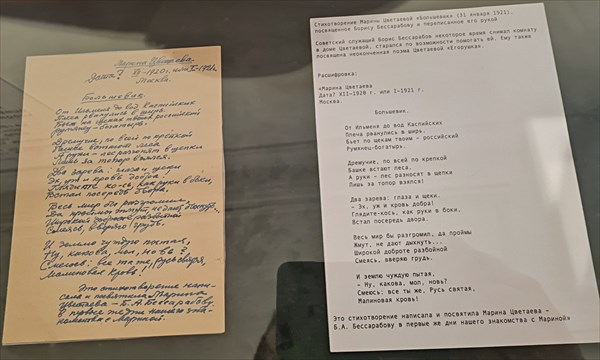 Марина Цветаева
Дата? XII-1920 г. или I-1921 г.
Москва.
Большевик.
От Ильменя до вод Каспийских
Плеча рванулись в ширь.
Бьет по щекам твоим российский
Румянец-богатырь.
Дремучие, по всей по крепкой
Башке встают леса
А руки – лес разносят в щепки
Лишь за топор взялся.
Два зарева: глаза и щеки
Эх, уж и кровь добра!
Глядите-кось, как руки в боки,
Встал посередь двора.
Весь мир бы разгромил,
Да проймы жмут, не дают дыхнуть
Широкой доброте разбойной
Смеясь, вверяю грудь.
И землю чуждую пытая,
Ну, какова, мол, новь?
Смеюсь: все ты же, Русь святая,
Малиновая кровь!
Это стихотворение напи-
сала и посвятила Марина
Цветаева – Б.А. Бессарабову.
В первые же дни нашего зна-
комства с Мариной.
Стихотворение Марины Цветаевой «Большевик» (31 января 1921),
посвященное Борису Бессарабову и переписанное его рукой
Советский служащий Борис Бессарабов некоторое время снимал комнату
в доме Цветаевой, старался по возможности помогать ей. Ему также
посвящена неоконченная поэма Цветаевой «Егорушка».
Расшифровка:
«Марина Цветаева
Дата? XII-1920 г. или I-1921 г.
Москва.
Большевик.
От Ильменя до вод Каспийских
Плеча рванулись в ширь.
Бьет по щекам твоим – российский
Румянец-богатырь.
Дремучие, по всей по крепкой
Башке встают леса.
А руки – лес разносят в щепки
Лишь за топор взялся!
Два зарева: глаза и щеки.
– Эх, уж и кровь добра!
Глядите-кось, как руки в боки,
Встал посередь двора.
Весь мир бы разгромил, да проймы
Жмут, не дают дыхнуть...
Широкой доброте разбойной
Смеясь, вверяю грудь.
И землю чуждую пытая,
– Ну, какова, мол, новь?
Смеюсь: все ты же, Русь святая,
Малиновая кровь!
Это стихотворение написала и посвятила Марина Цветаева –
Б.А. Бессарабову в первые же дни нашего знакомства с Мариной»